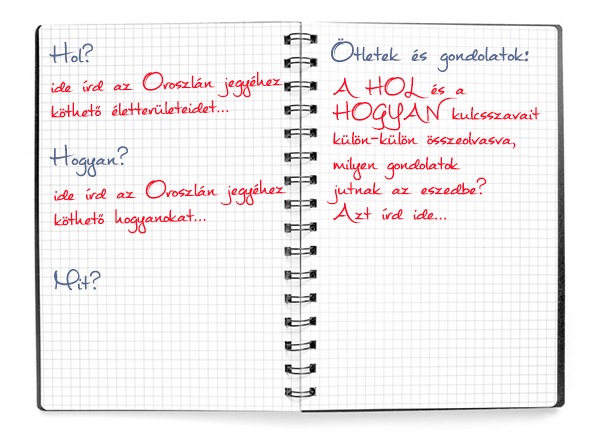 Hol?
ide írd az Oroszlán jegyéhez
köthető életterületeidet...
Hogyan?
ide írd az Oroszlán jegyéhez
köthető hogyanokat...
Mit?
Ötletek és gondolatok:
A HOL és a
HOGYAN kulcsszavait
külön-külön összeolvasva,
milyen gondolatok
jutnak az eszedbe?
Azt írd ide...